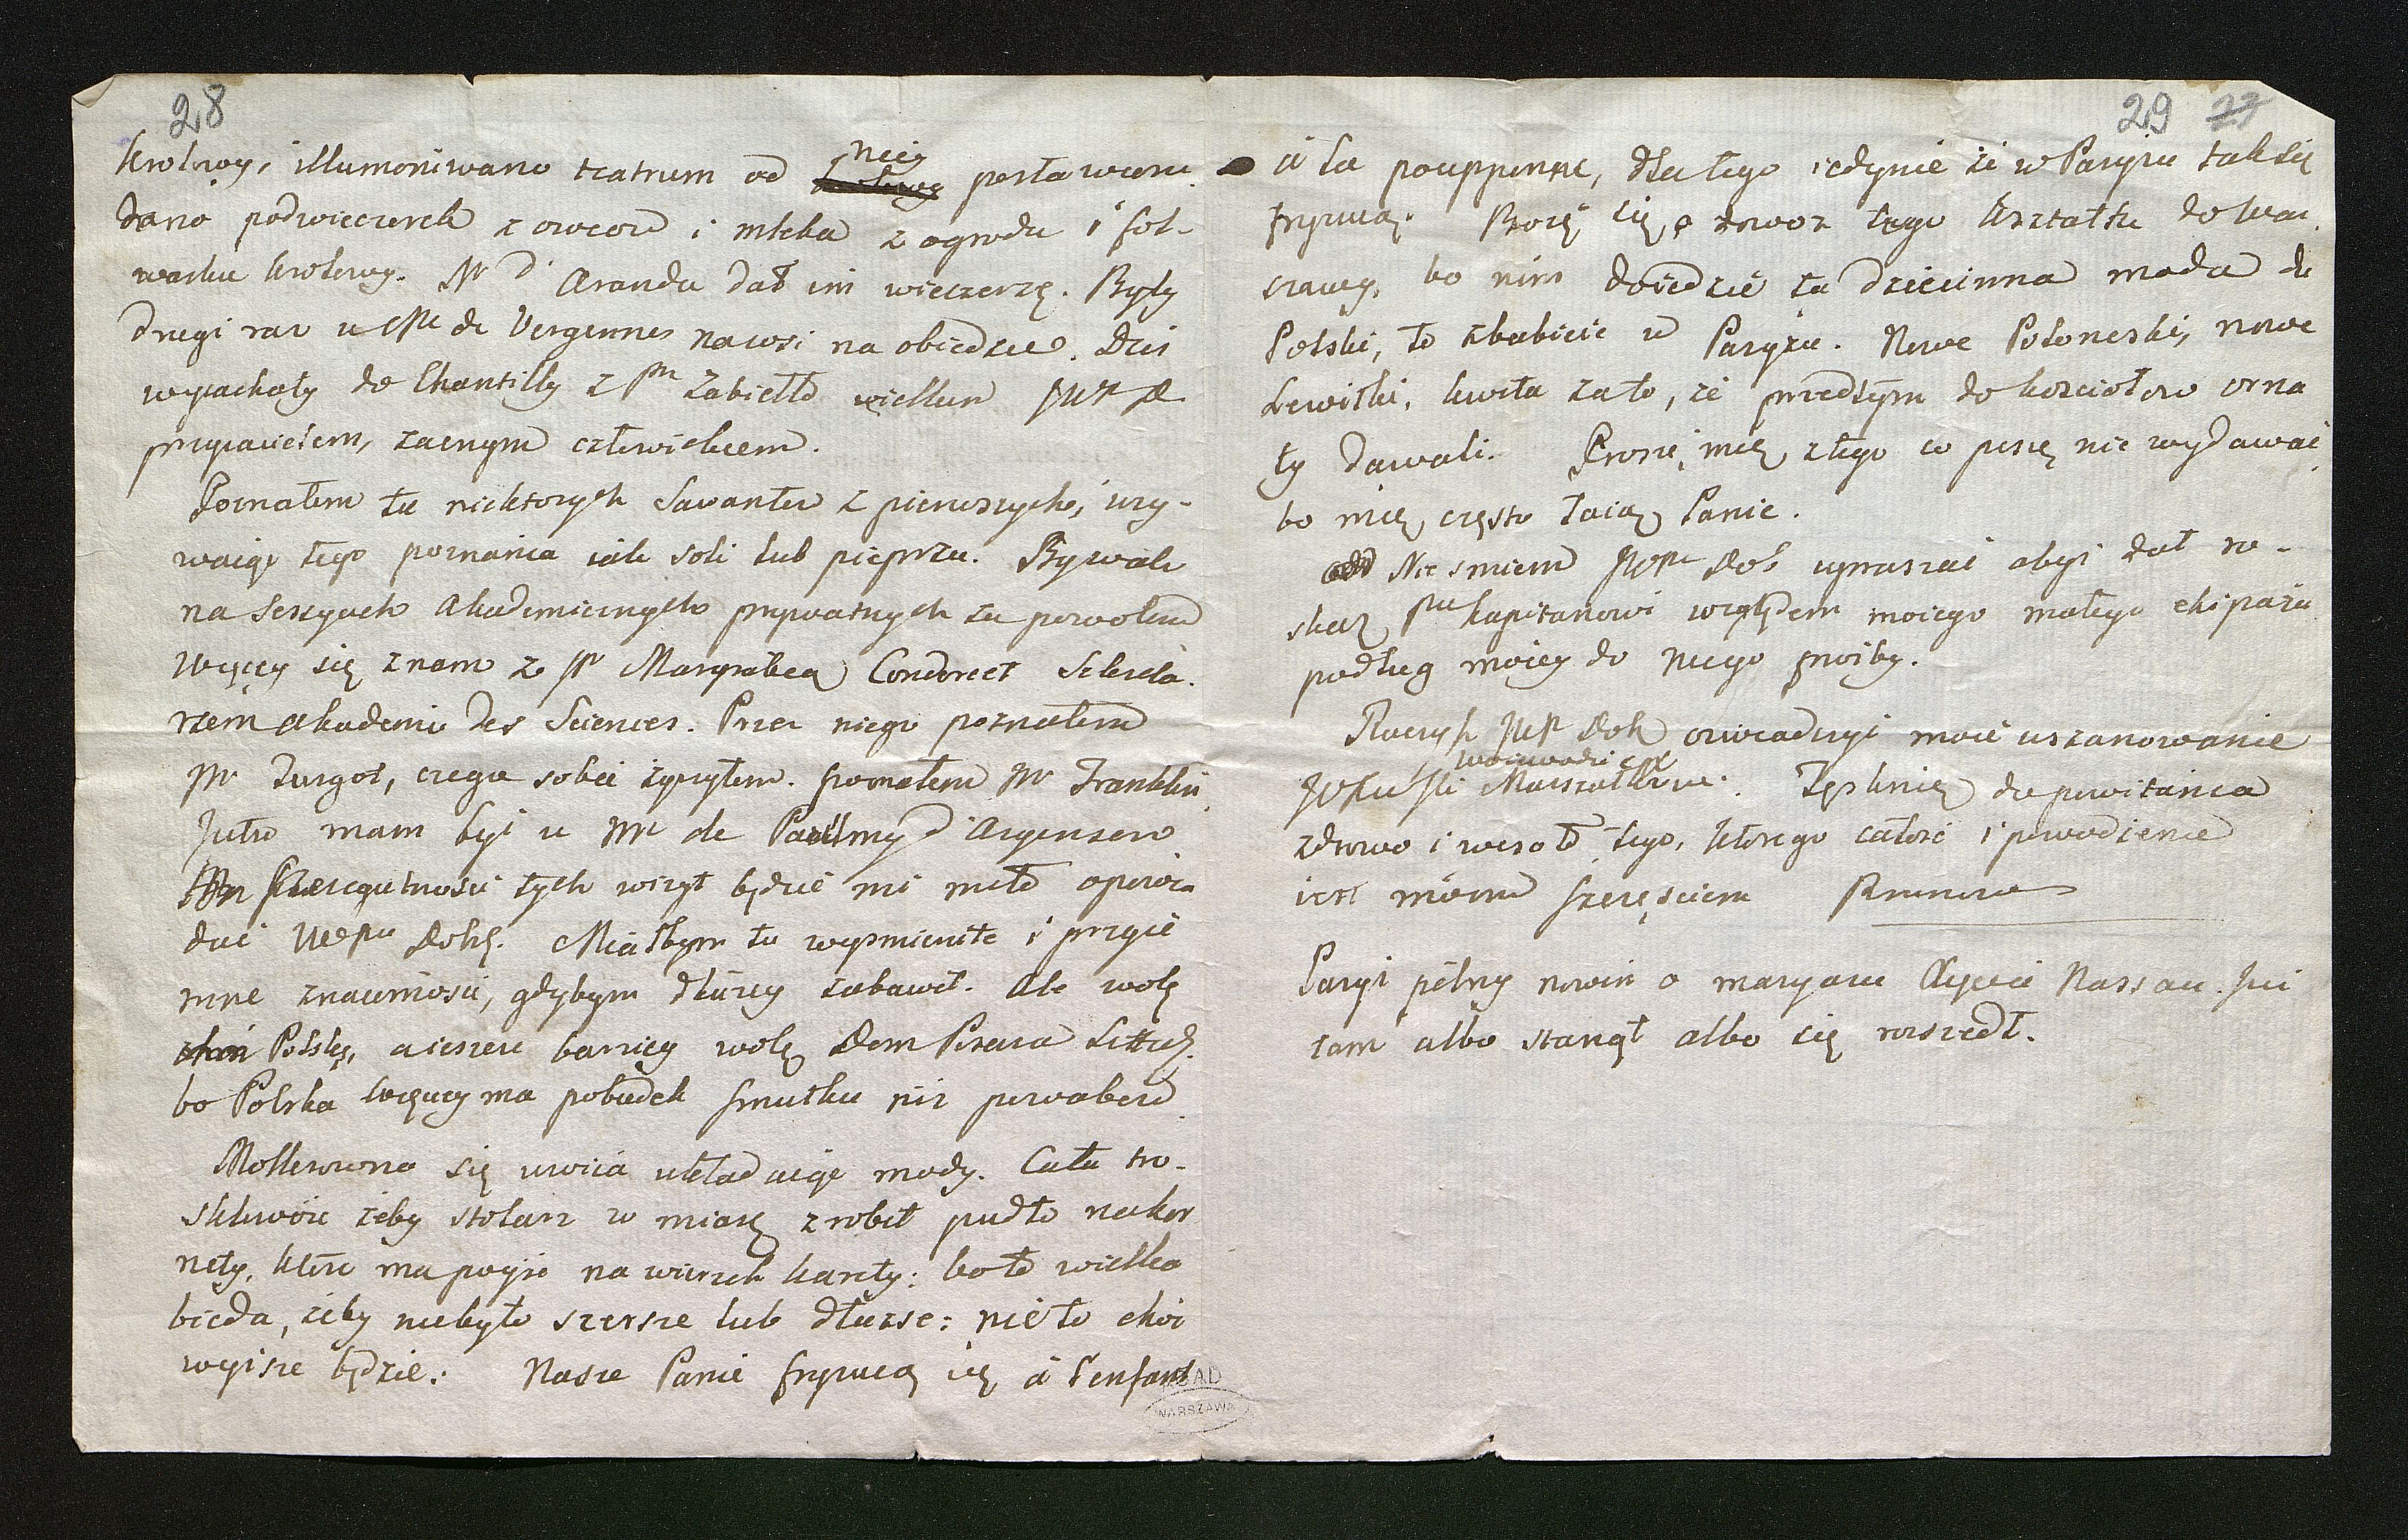 28
Krolowy, illumoniwano teatrum od niey postawione.
dano podwieczerek z owocow i mleka z ogrodu i fol-
warku krolowy. Mr d'Aranda dał im wieczerzę. Były
drugi raz u de Vergennes na wsi na obiedzie. Dziś
wyiachały do Chantilly z Pm Zabiełło wielkim
przyiacielem, zacnym człowiekiem.
Poznałem tu niektorych Savantow z pierwszych, uży-
waiąc tego poznania iak soli lub pieprzu. Bywałe
na sessyach Akademicznych prywatnych tu pozwolono
więcey się znam z Mr Margrabią Condorcet Sekreta-
rzem Akademii des Sciences. Przez niego poznałem
Mr Turgot, czego sobie życzyłem. poznałem Mr Franklin
Jutro mam być u Mr de Paulmy d'Argenson
Szczegulności tych wizyt będzie mi miło opowia
dać Dobr. Miałbym tu wysmienite i przyie
mne znaiomości, gdybym dłużey zabawił. Ale wolę
Polskę, a ieszcze barziey wolę Dom Pisarza Littgo
bo Polska więcey ma pobudek smutku niż powabow
Mollerowna się uwiia układaiąc mody. Cała tro-
skliwość żeby stolarz w miarę zrobił pudło na kor
nety, ktore ma poyść na wierzch karety: bo to wielka
bieda, żeby nie było szersze lub dłuższe: nic to choć
wyższe będzie: Nasze Panie fryzuią się à l'enfant
AGAD
WARSZAWA
29 27
à la pouppenne, dla tego iedynie że w Paryżu tak się
fryzuią. Boię się o dowoz tego kształtu do War
szawy, bo nim doiedzie ta dziecinna moda do
Polski, to zbabieie w Paryżu. Nowe Poloneski, nowe
Lewitki, kwita za to, że przedtym do kosciołow orna
ty dawali. Proszę mię z tego co piszę nie wydawać
bo mię często łaią Panie.
Nie smiem Dob upraszać abyś dał ro-
skaz Pnu Kapitanowi względem moiego małego ekipażu
podług moiey do niego prośby.
Raczysz Dob oswiadczyć moie uszanowanie
woiewodzie
Marszałkowi. Tęsknię do powitania
zdrowo i wesoło tego, ktorego całość i powodzenie
iest moim szczęściem
Paryż pełny nowin o maryażu Xięcia Nassau. Już
tam albo stanął albo się rozszedł.